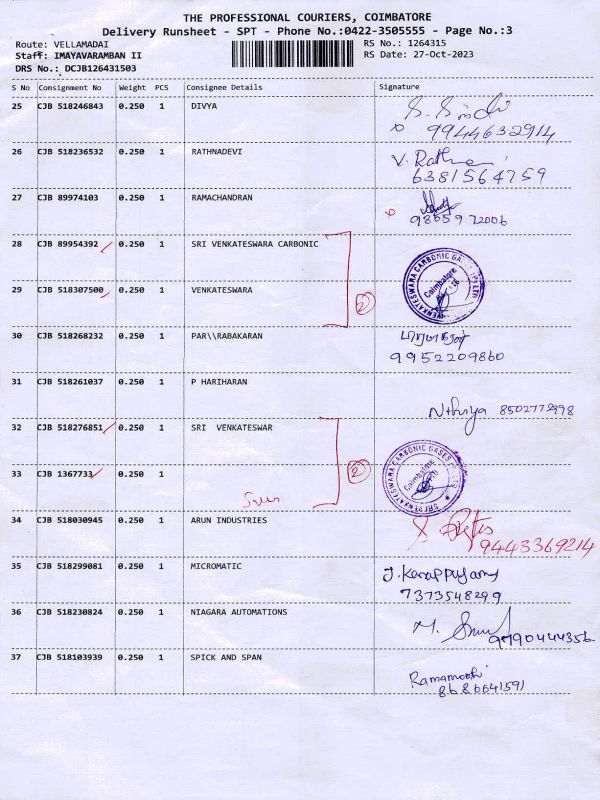 THE PROFESSIONAL COURIERS, COIMBATORE
Delivery Runsheet - SPT - Phone No.:0422-3505555 - Page No.:3
Route: VELLAMADAI RS No.: 1264315
Staff: IMAYAVARAMBAN II RS Date: 27-Oct-2023
DRS No.: DCJB126431503
S No Consignment No Weight PCS Consignee Details Signature
25 CJB 518246843 0.250 1 DIVYA
9944632914
26 CJB 518236532 0.250 1 RATHNADEVI V. Rathna
6381564759
27 CJB 89974103 0.250 1 RAMACHANDRAN
9865972006
28 CJB 89954392 0.250 1 SRI VENKATESWARA CARBONIC
SRI VENKATESWARA CARBONIC GASES PVT LTD
Coimbatore
29 CJB 518307500 0.250 1 VENKATESWARA
2
30 CJB 518268232 0.250 1 PAR\\RABAKARAN
9952209860
31 CJB 518261037 0.250 1 P HARIHARAN
Nithiya 8502772998
32 CJB 518276851 0.250 1 SRI VENKATESWAR
SRI VENKATESWARA CARBONIC GASES PVT LTD
Coimbatore
33 CJB 1367733 0.250 1
2
34 CJB 518030945 0.250 1 ARUN INDUSTRIES
9443369214
35 CJB 518299081 0.250 1 MICROMATIC J. Karappusamy
7373548299
36 CJB 518230824 0.250 1 NIAGARA AUTOMATIONS M.
9790444356
37 CJB 518103939 0.250 1 SPICK AND SPAN
Ramamoothi
8686641591